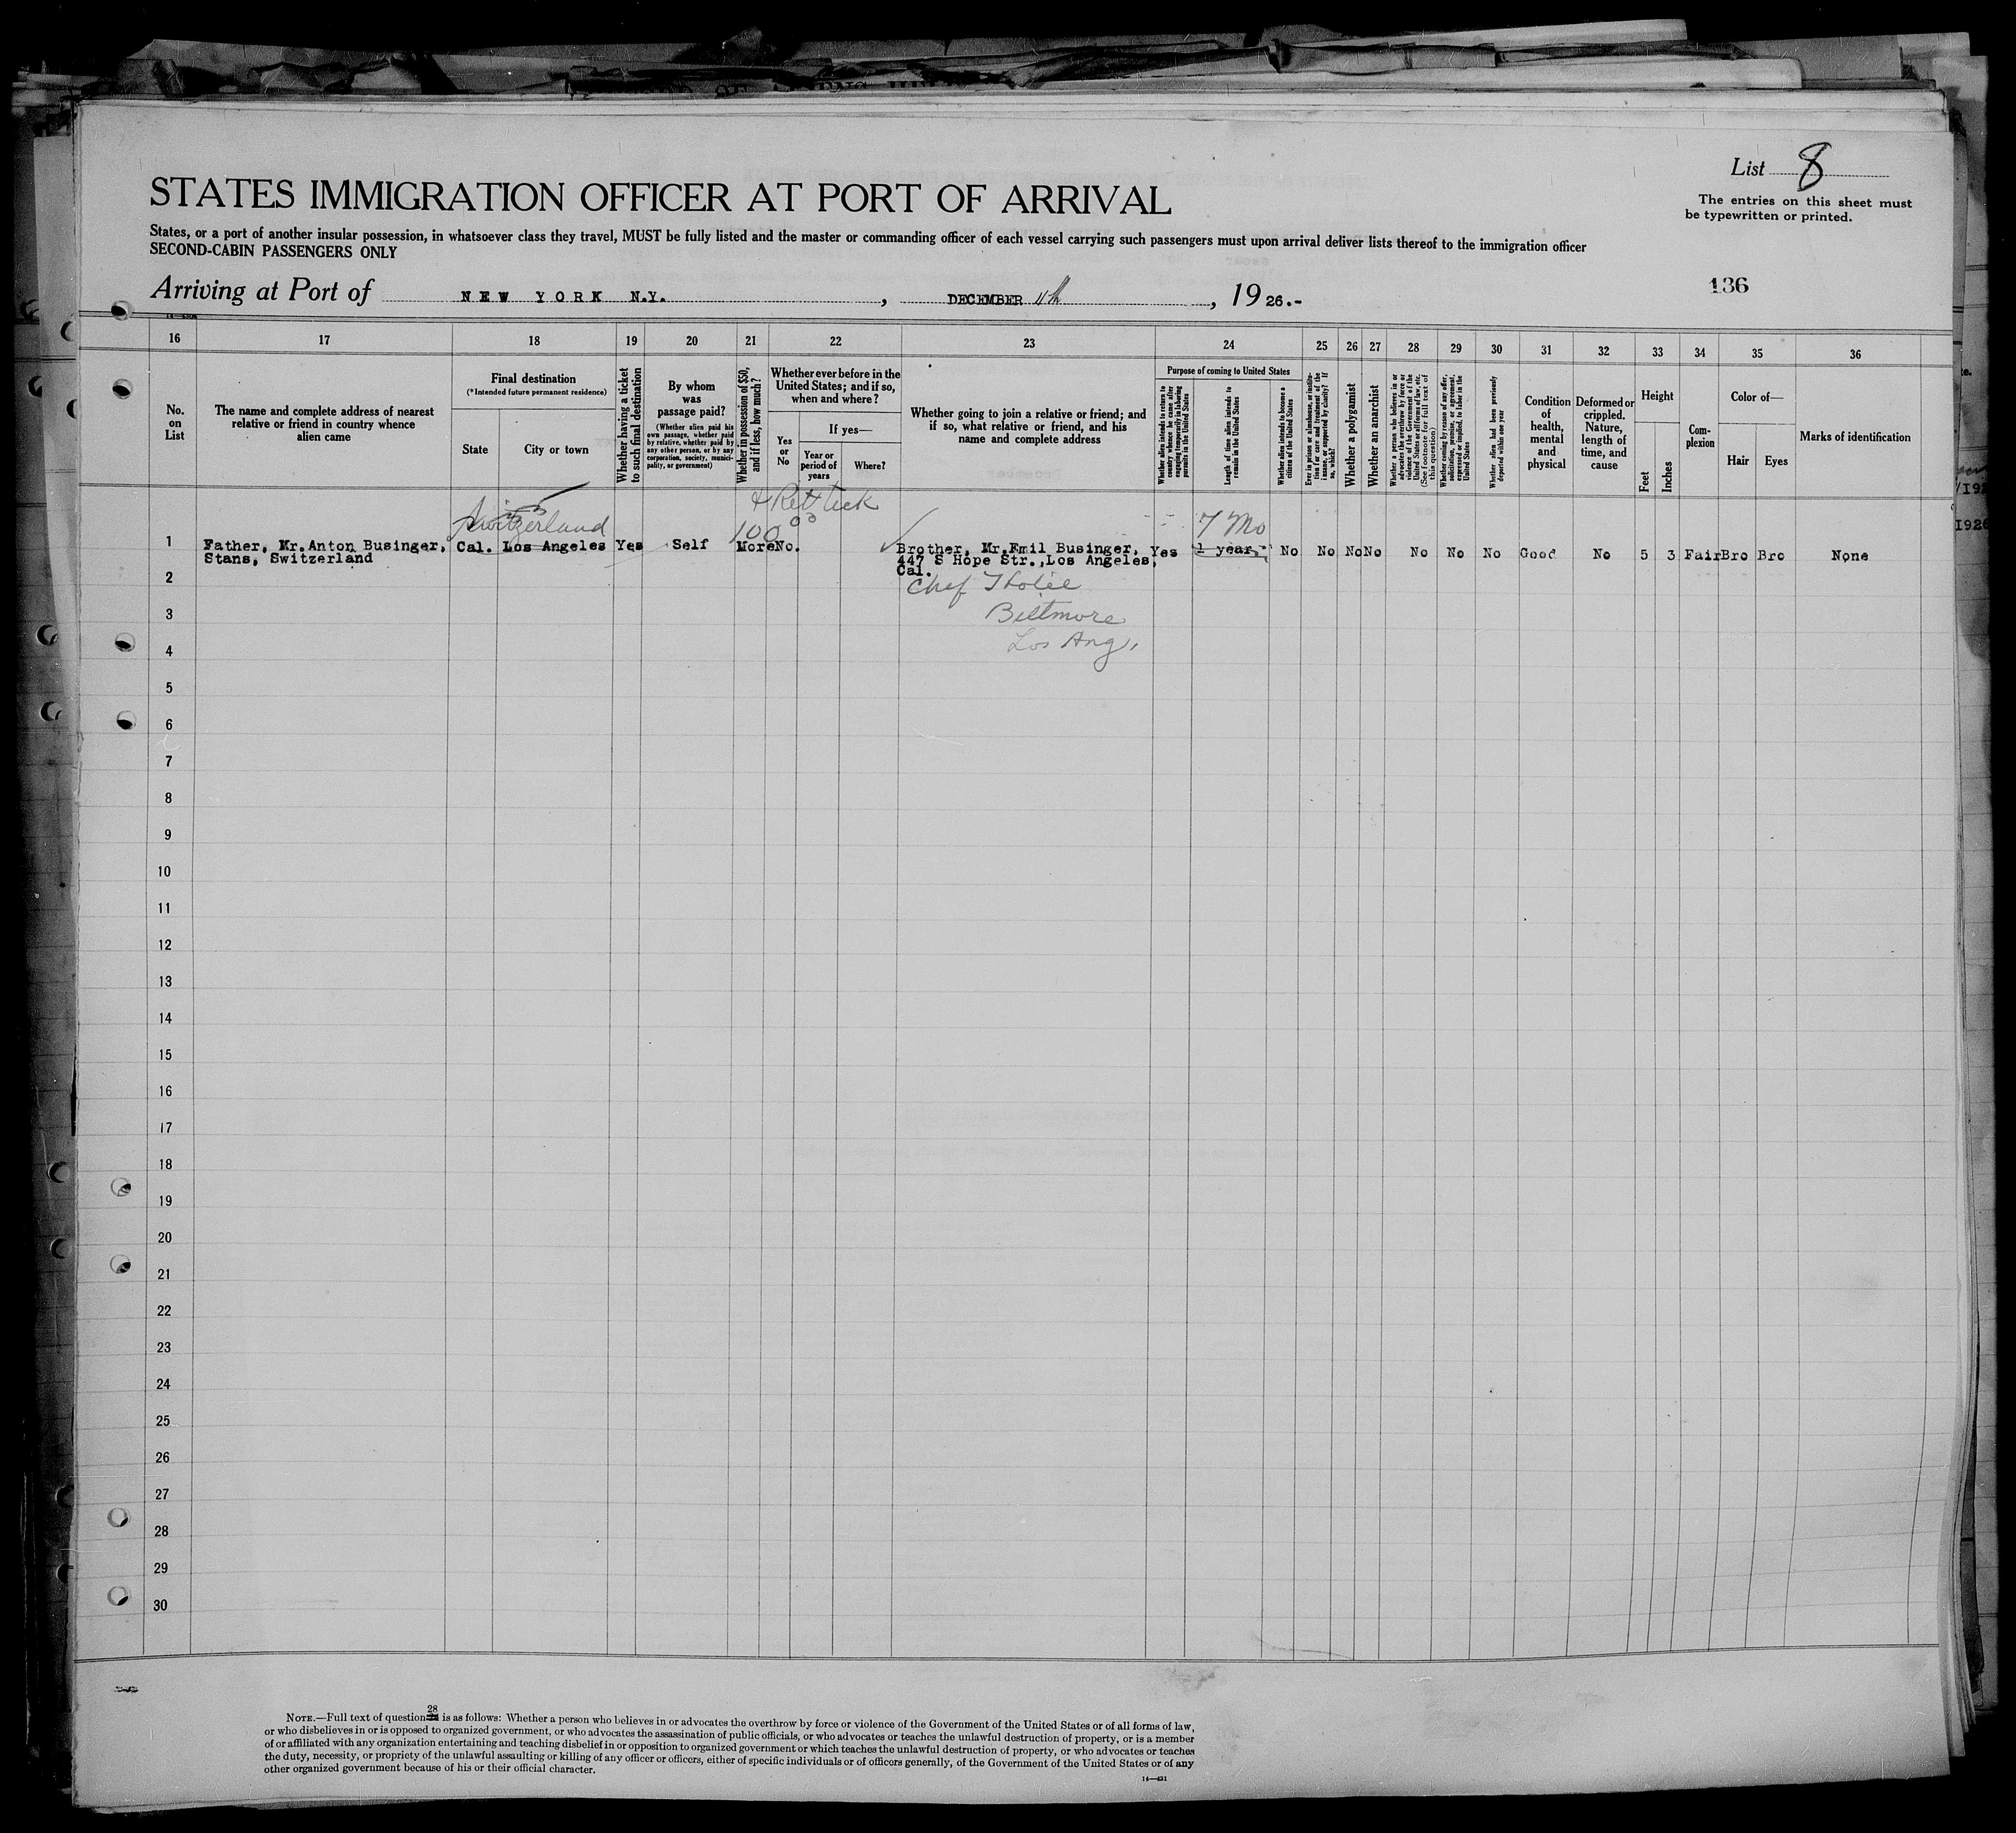 List 8
The entries on this sheet must
be typewritten or printed.
STATES IMMIGRATION OFFICER AT PORT OF ARRIVAL
States, or a port of another insular possession, in whatsoever class they travel, MUST be fully listed and the master or commanding officer of each vessel carrying such passengers must upon arrival deliver lists thereof to the immigration officer
SECOND-CABIN PASSENGERS ONLY
136
Arriving at Port of NEW YORK N.Y. , DECEMBER 11th , 1926.-
16 17 18 19 20 21 22 23 24 25 26 27 28 29 30 31 32 33 34 35 36
No.
on
List
The name and complete address of nearest
relative or friend in country whence
alien came
Final destination
(*Intended future permanent residence)
State
City or town
Whether having a ticket
to such final destination
By whom
was
passage paid?
(Whether alien paid his
own passage, whether paid
by relative, whether paid by
any other person, or by any
corporation, society, munici-
pality, or government)
Whether in possession of $50,
and if less, how much?
Whether ever before in the
United States; and if so,
when and where?
Yes
or
No
If yes—
Year or
period of
years
Where?
Whether going to join a relative or friend; and
if so, what relative or friend, and his
name and complete address
Purpose of coming to United States
Whether alien intends to return to
country whence he came after
engaging temporarily in laboring
pursuits in the United States
Length of time alien intends to
remain in the United States
Whether alien intends to become a
citizen of the United States
Ever in prison or almshouse, or institu-
tion for care and treatment of the
insane, or supported by charity? If
so, which?
Whether a polygamist
Whether an anarchist
Whether a person who believes in or
advocates the overthrow by force or
violence of the Government of the
United States or all forms of law, etc.
(See footnote for full text of
this question)
Whether coming by reason of any offer,
solicitation, promise, or agreement,
expressed or implied, to labor in the
United States
Whether alien had been previously
deported within one year
Condition
of
health,
mental
and
physical
Deformed or
crippled.
Nature,
length of
time, and
cause
Height
Feet
Inches
Com-
plexion
Color of—
Hair
Eyes
Marks of identification
Switzerland
& Ret tick
100 00
7 Mo
1 Father, Mr.Anton Businger, Cal. Los Angeles Yes Self More No. Brother, Mr.Emil Businger, Yes 1 year No No No No No No No Good No 5 3 Fair Bro Bro None
Stans, Switzerland 447 S Hope Str.,Los Angeles,
Cal.
2 Chef
3 Biltmore
4 Los Ang.
5
6
7
8
9
10
11
12
13
14
15
16
17
18
19
20
21
22
23
24
25
26
27
28
29
30
28
NOTE.—Full text of question is as follows: Whether a person who believes in or advocates the overthrow by force or violence of the Government of the United States or of all forms of law,
or who disbelieves in or is opposed to organized government, or who advocates the assassination of public officials, or who advocates or teaches the unlawful destruction of property, or is a member
of or affiliated with any organization entertaining and teaching disbelief in or opposition to organized government or which teaches the unlawful destruction of property, or who advocates or teaches
the duty, necessity, or propriety of the unlawful assaulting or killing of any officer or officers, either of specific individuals or of officers generally, of the Government of the United States or of any
other organized government because of his or their official character.
14—431